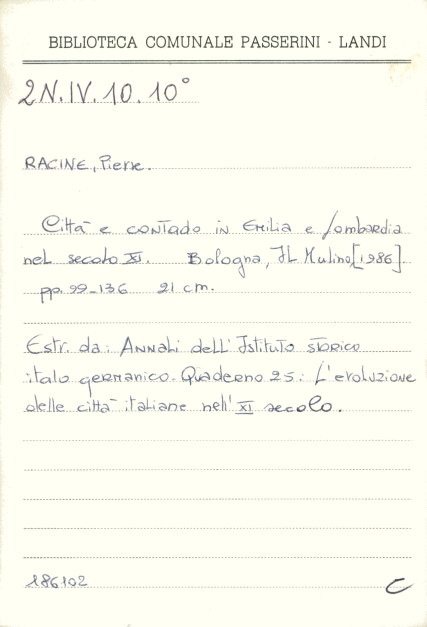 BIBLIOTECA COMUNALE PASSERINI - LANDI
2N.IV.10.10°
RACINE, Pierre.
Città e contado in Emilia e Lombardia
nel secolo XI. Bologna, Il Mulino [1986].
pp. 99-136 21 cm.
Estr. da: Annali dell'Istituto storico
italo germanico. Quaderno 25: L'evoluzione
delle città italiane nell'XI secolo.
186102 C